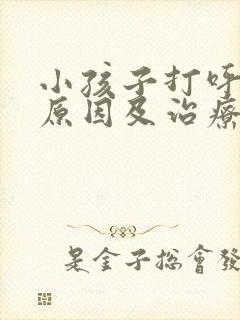 小孩子打呼
原因及治療
是金子總會發